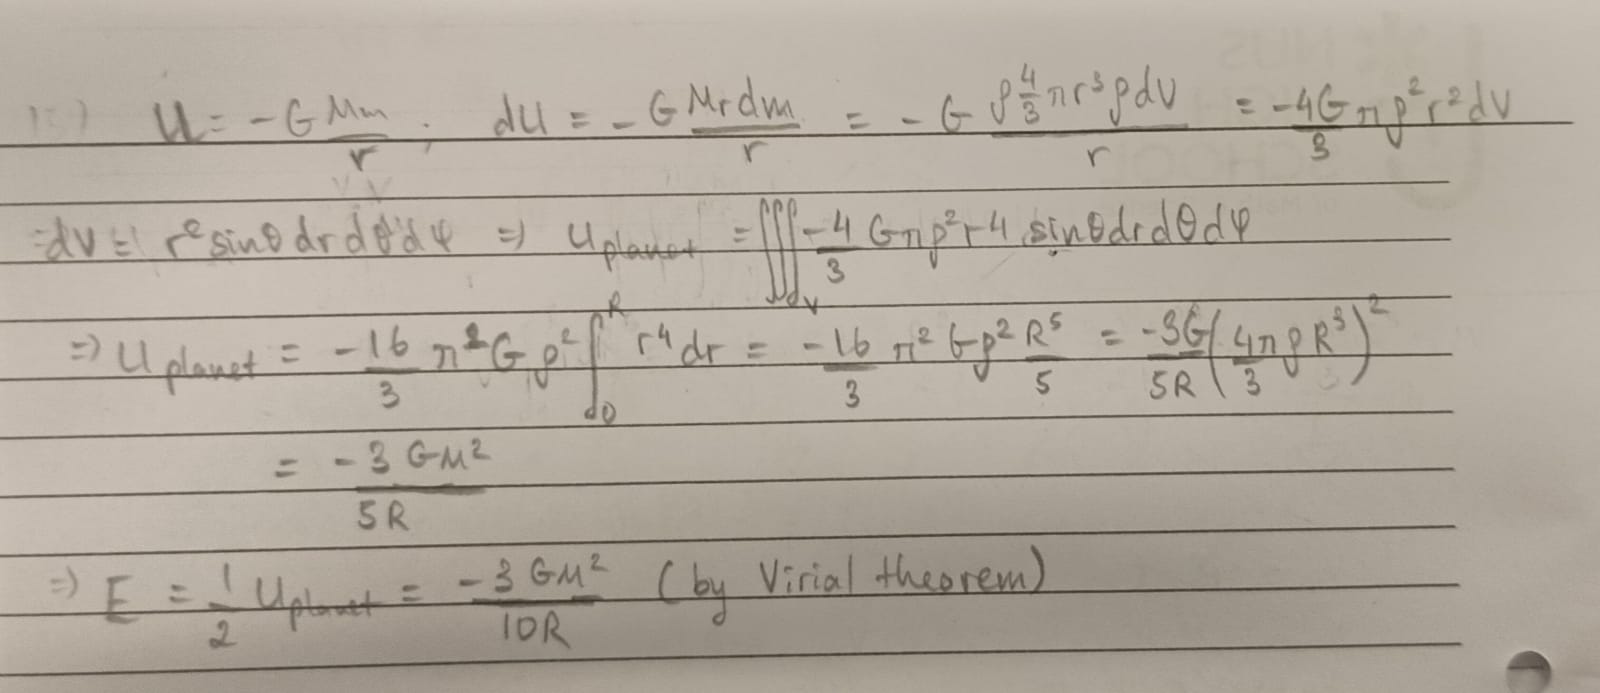 U = -G Mm/r , dU = -G Mrdm/r = -G ρ 4/3 πr³ρdV/r = -4G/3 πρ²r²dV
dV = r² sinθ dr dθ dφ ⇒ Uplanet = ∭V -4/3 Gπρ²r4 sinθdrdθdφ
⇒ Uplanet = -16/3 π²Gρ² ∫0^R r⁴dr = -16/3 π²Gρ² R⁵/5 = -3G/5R (4πρR³/3)²
= -3GM²/5R
⇒ E = 1/2 Uplanet = -3GM²/10R (by Virial theorem)